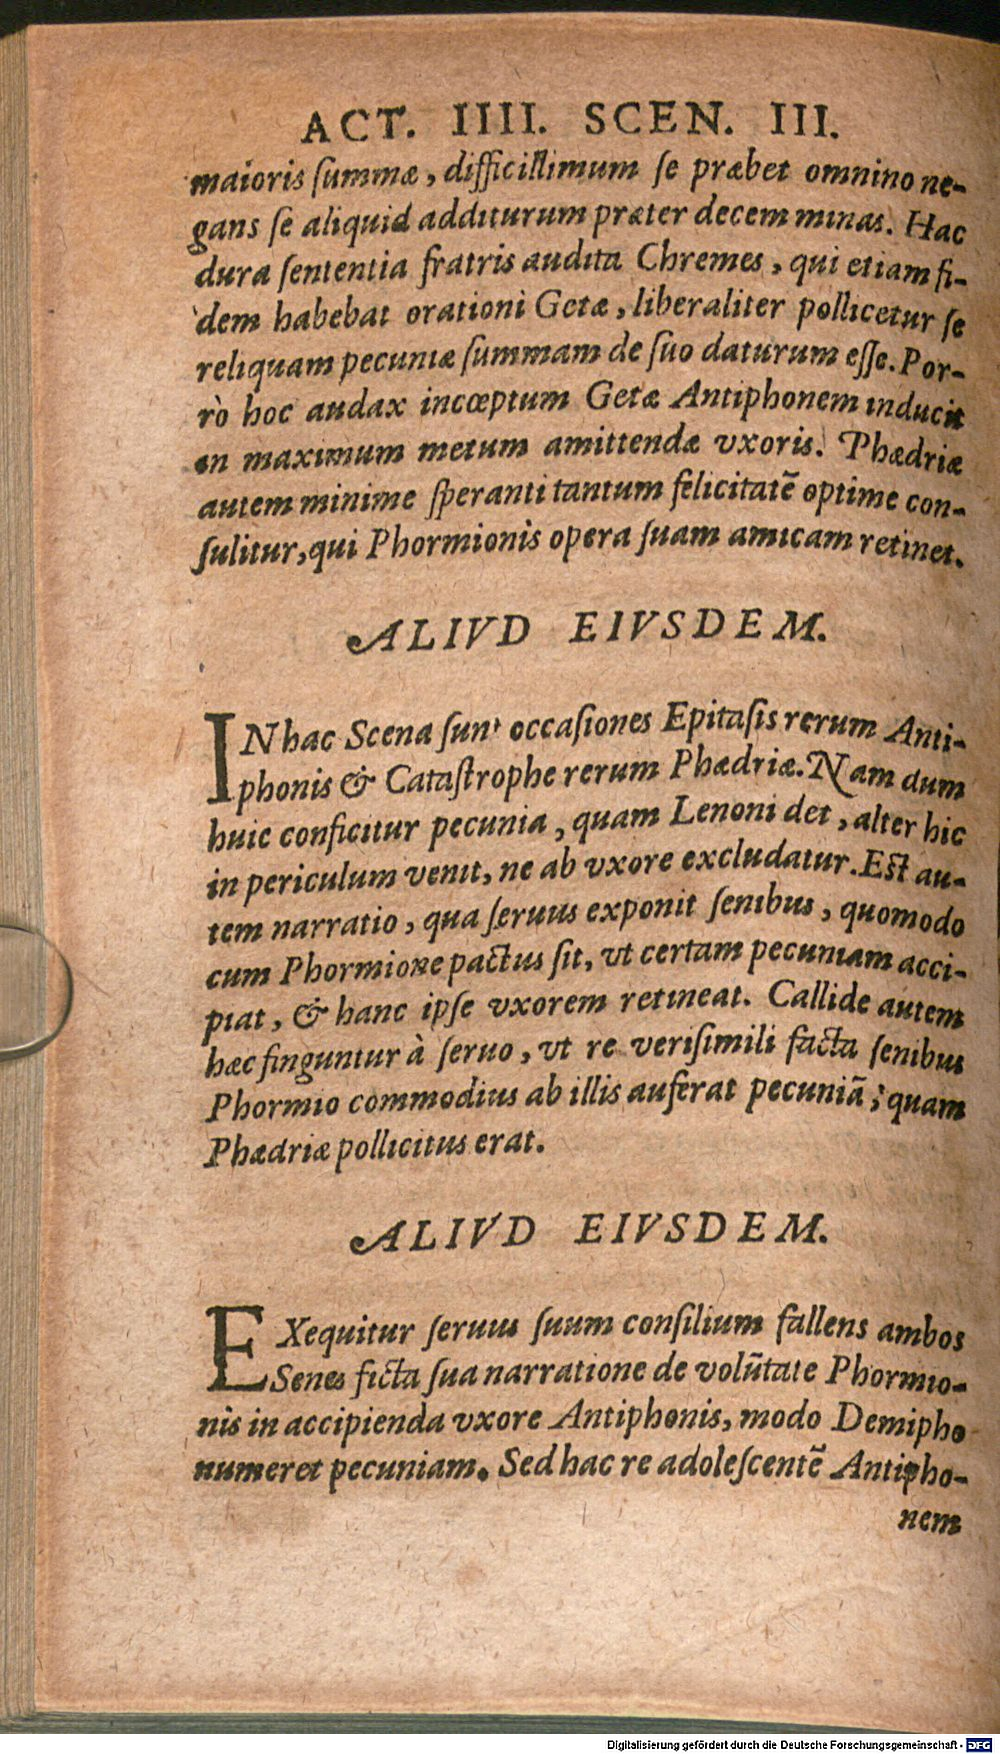 ACT. IIII. SCEN. III.
maioris ſummæ, difficillimum ſe præbet omnino ne-
gans ſe aliquid additurum præter decem minas. Hac
dura ſententia fratris audita Chremes, qui etiam fi-
dem habebat orationi Getæ, liberaliter pollicetur ſe
reliquam pecuniæ ſummam de ſuo daturum eſſe. Por-
rò hoc audax incœptum Getæ Antiphonem inducit
in maximum metum amittendæ vxoris. Phædriæ
autem minime ſperanti tantum felicitatē optime con-
ſulitur, qui Phormionis opera ſuam amicam retinet.
ALIVD EIVSDEM.
IN hac Scena ſunt occaſiones Epitaſis rerum Anti-
phonis & Cataſtrophe rerum Phædriæ. Nam dum
huic conficitur pecunia, quam Lenoni det, alter hic
in periculum venit, ne ab vxore excludatur. Eſt au-
tem narratio, qua ſeruus exponit ſenibus, quomodo
cum Phormione pactus ſit, vt certam pecuniam acci-
piat, & hanc ipſe vxorem retineat. Callide autem
hæc finguntur à ſeruo, vt re veriſimili facta ſenibus
Phormio commodius ab illis auferat pecuniā, quam
Phædriæ pollicitus erat.
ALIVD EIVSDEM.
EXequitur ſeruus ſuum conſilium fallens ambos
Senes ficta ſua narratione de volūtate Phormio-
nis in accipienda vxore Antiphonis, modo Demipho
numeret pecuniam. Sed hac re adoleſcentē Antipho-
nem
Digitalisierung gefördert durch die Deutsche Forschungsgemeinschaft - DFG